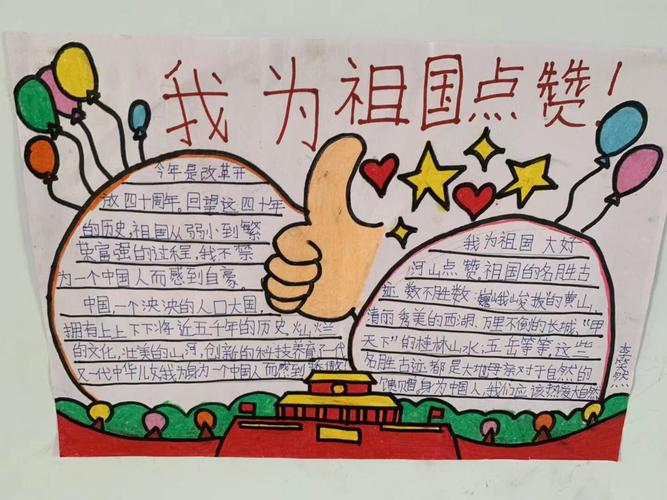 我为祖国点赞！
今年是改革开
放四十周年。回望这四十年
的历史，祖国从弱小到繁
荣富强的过程，我不禁
为一个中国人而感到自豪。
中国一个泱泱的人口大国，
拥有上上下下将近五千年的历史，灿烂
的文化，壮美的山河，创新的科技养育了一代
又一代中华儿女，我为身为一个中国人而感到骄傲！
我为祖国大好
河山点赞祖国的名胜古
迹数不胜数：巍峨峻拔的黄山，
清丽秀美的西湖，万里不倒的长城，“甲
天下”的桂林山水；五岳等等，这些
名胜古迹都是大地母亲对于自然的
身为中国人，我们应该热爱大自然